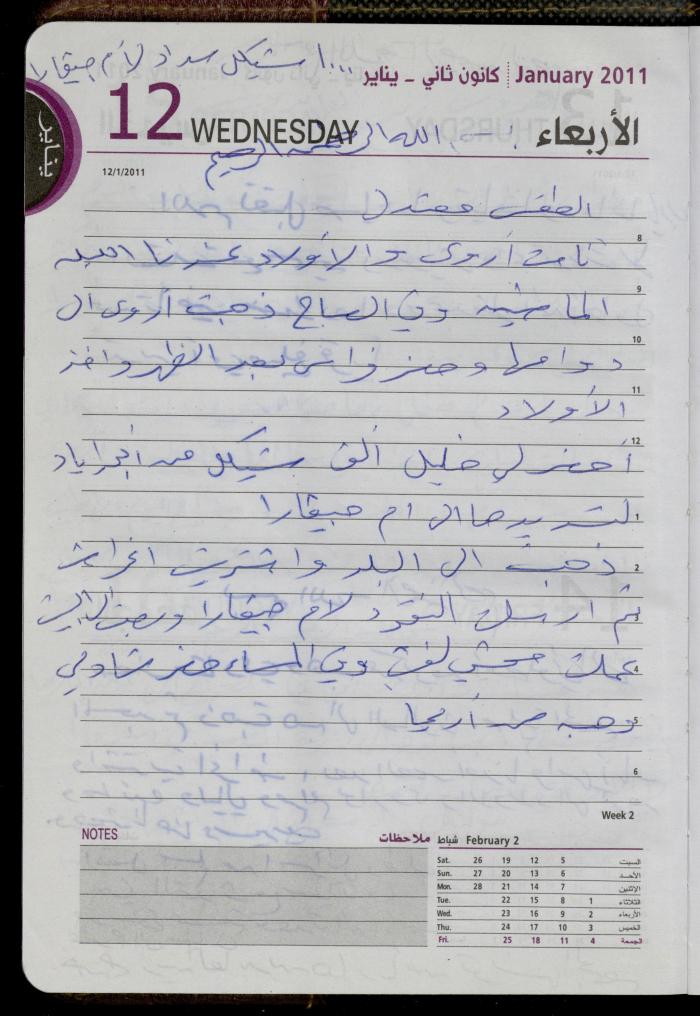 شيكل سداد لأم جيڤارا
كانون ثاني - يناير January 2011
يناير
12 WEDNESDAY الأربعاء
بسم الله الرحمن الرحيم
12/1/2011
الطقس معتدل
8
نامت أروى والأولاد عندنا الليلة
9
الماضية وفي الصباح ذهبت أروى الى
10
دوامها وحضر فراس بعد الظهر واخذ
11
الأولاد
12
أحضر لي خليل ألف شيكل من
1
لتسديدها الى ام جيڤارا
2
ذهبت الى البلد واشتريت اغراض
3
ثم ارسلت النقود لام جيڤارا
4
عملت محشي لفت وفي المساء حضر شادي
5
من أريحا
6
Week 2
NOTES ملاحظات
شباط February 2
Sat. 26 19 12 5 السبت
Sun. 27 20 13 6 الأحد
Mon. 28 21 14 7 الإثنين
Tue. 22 15 8 1 الثلاثاء
Wed. 23 16 9 2 الأربعاء
Thu. 24 17 10 3 الخميس
Fri. 25 18 11 4 الجمعة